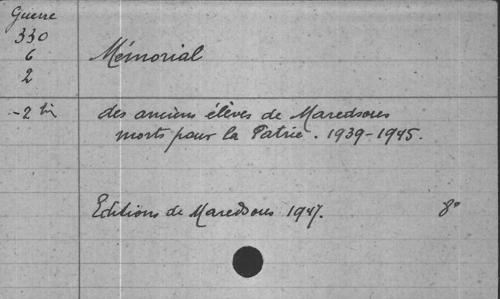 Guerre
330
6
2
Mémorial
- 2 bis
des anciens élèves de Maredsous
morts pour la Patrie. 1939-1945.
Editions de Maredsous 1947.
8°